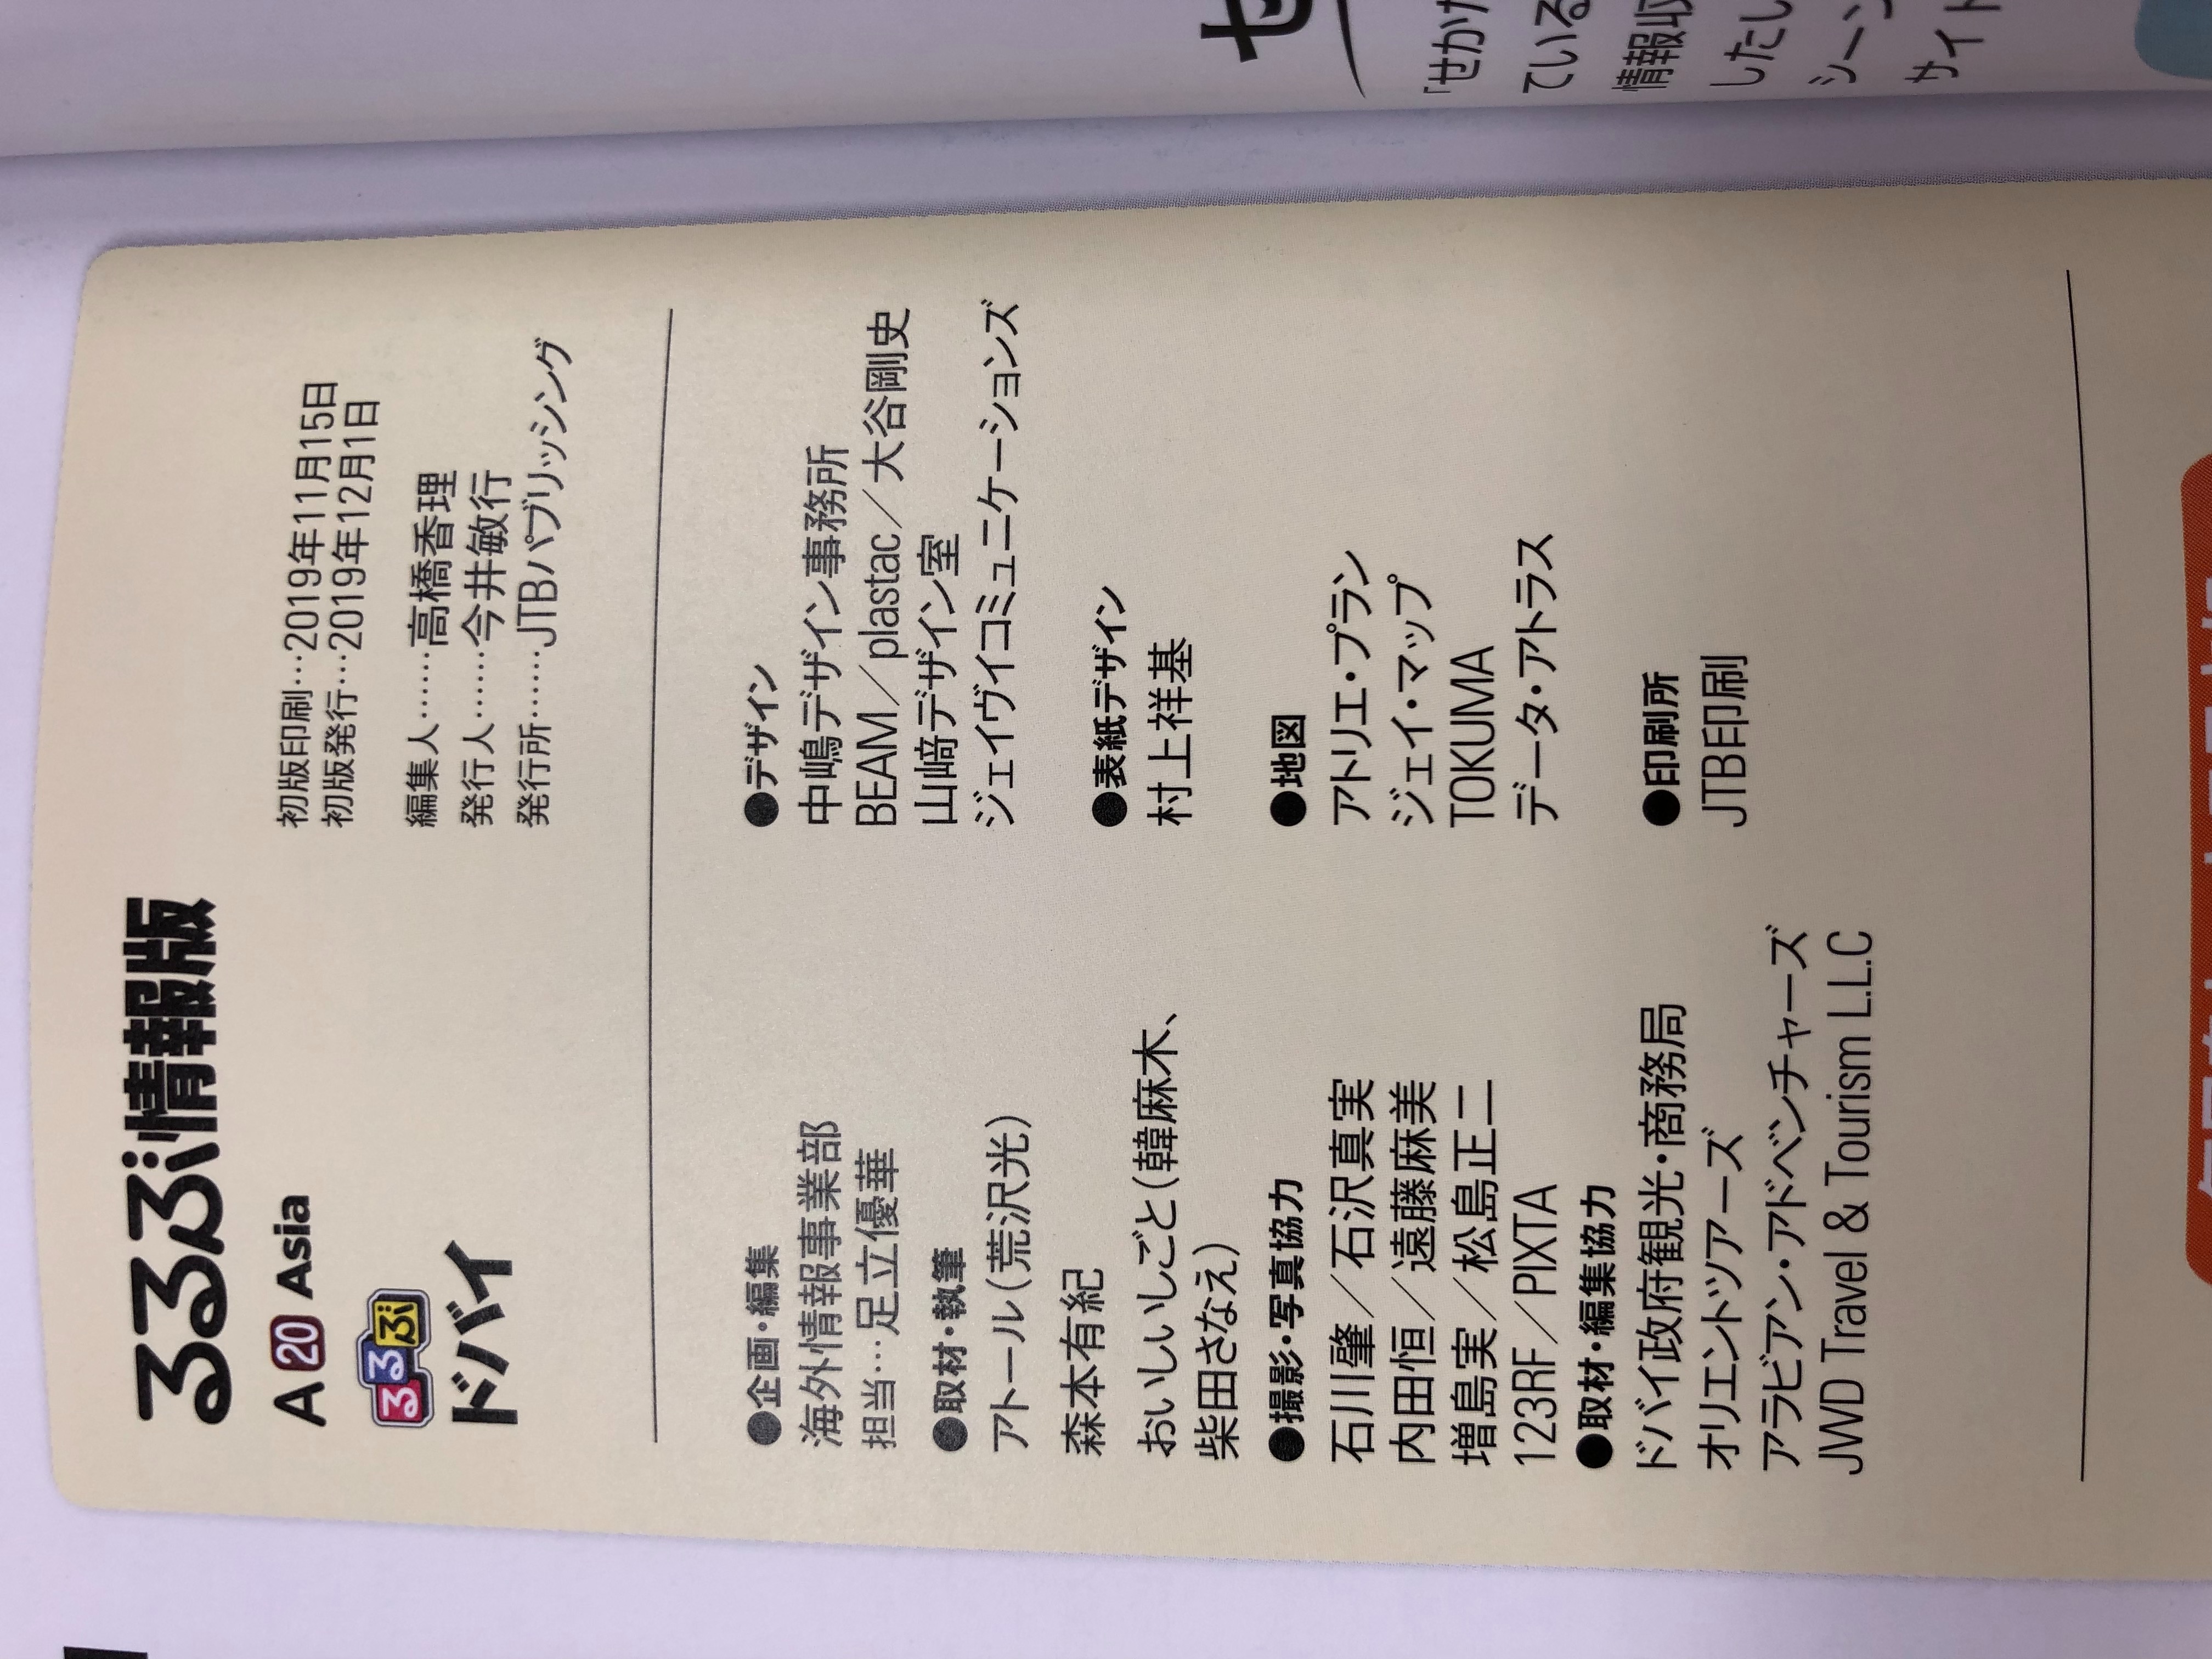 るるぶ情報版
A 20 Asia
るるぶ
ドバイ
初版印刷…2019年11月15日
初版発行…2019年12月1日
編集人……高橋香理
発行人……今井敏行
発行所……JTBパブリッシング
●企画・編集
海外情報事業部
担当…足立優華
●取材・執筆
アトール(荒沢光)
森本有紀
おいしいしごと(韓麻木、
柴田さなえ)
●撮影・写真協力
石川肇/石沢真実
内田恒/遠藤麻美
増島実/松島正二
123RF/PIXTA
●取材・編集協力
ドバイ政府観光・商務局
オリエントツアーズ
アラビアン・アドベンチャーズ
JWD Travel & Tourism L.L.C
●デザイン
中嶋デザイン事務所
BEAM/plastac/大谷剛史
山﨑デザイン室
ジェイヴイコミュニケーションズ
●表紙デザイン
村上祥基
●地図
アトリエ・プラン
ジェイ・マップ
TOKUMA
データ・アトラス
●印刷所
JTB印刷
せ
「せかた
ている
情報収
したし
シーン
サイト